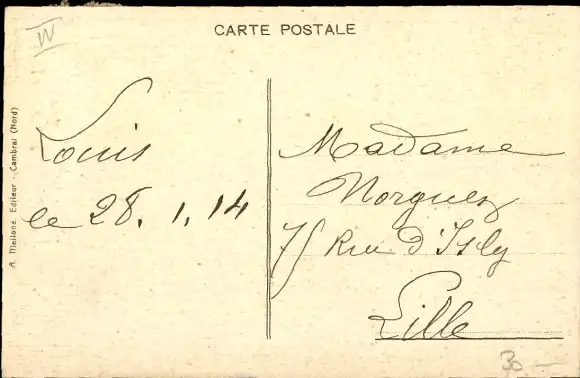 W
CARTE POSTALE
Louis
le 28. 1. 14
Madame
Morguez
75 Rue d'Isly
Lille
A. Mellone, Editeur - Cambrai (Nord)
30 —